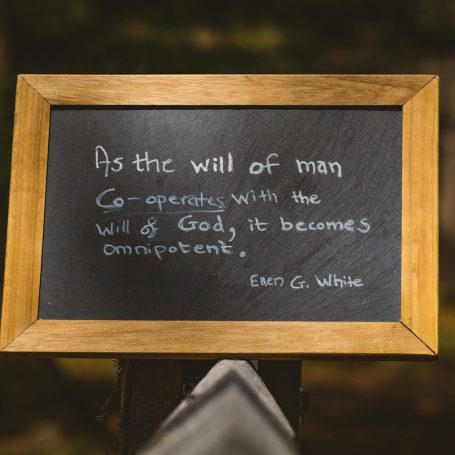 As the will of man
Co-operates with the
will of God, it becomes
omnipotent.
Ellen G. White